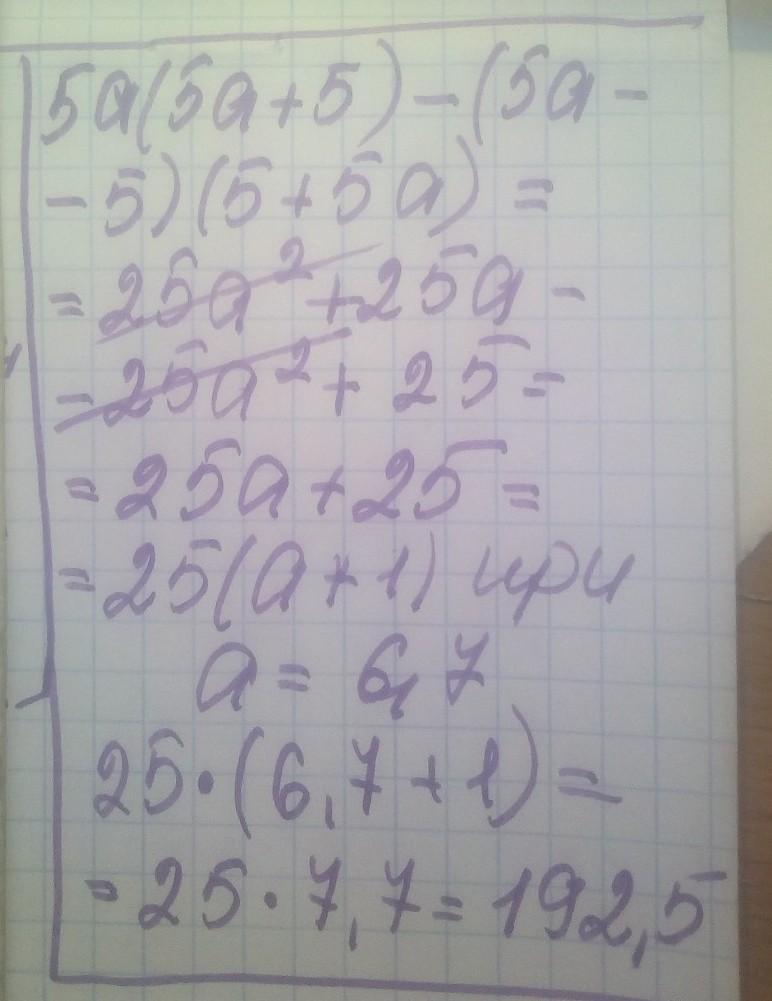 5a(5a+5)-(5a-
-5)(5+5a)=
=25a²+25a-
-25a²+25=
=25a+25=
=25(a+1) при
a=6,7
25·(6,7+1)=
=25·7,7=192,5